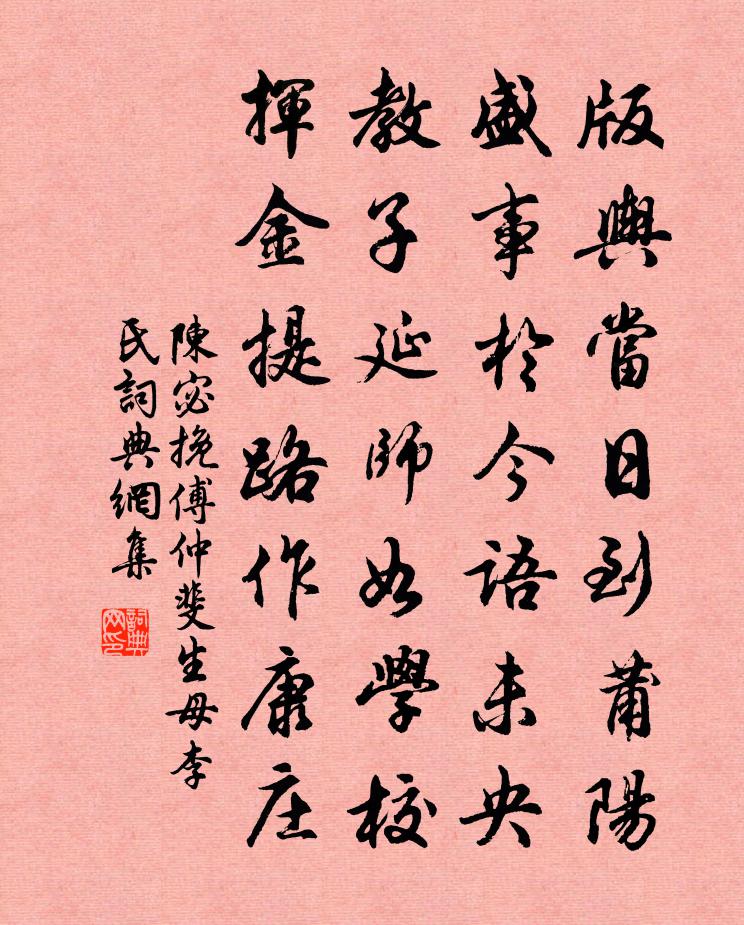 版輿當日到莆陽
盛事於今語未央
教子延師如學校
揮金提路作康庄
陳宓挽傅仲斐生母李
氏詞典網集
詞典网印